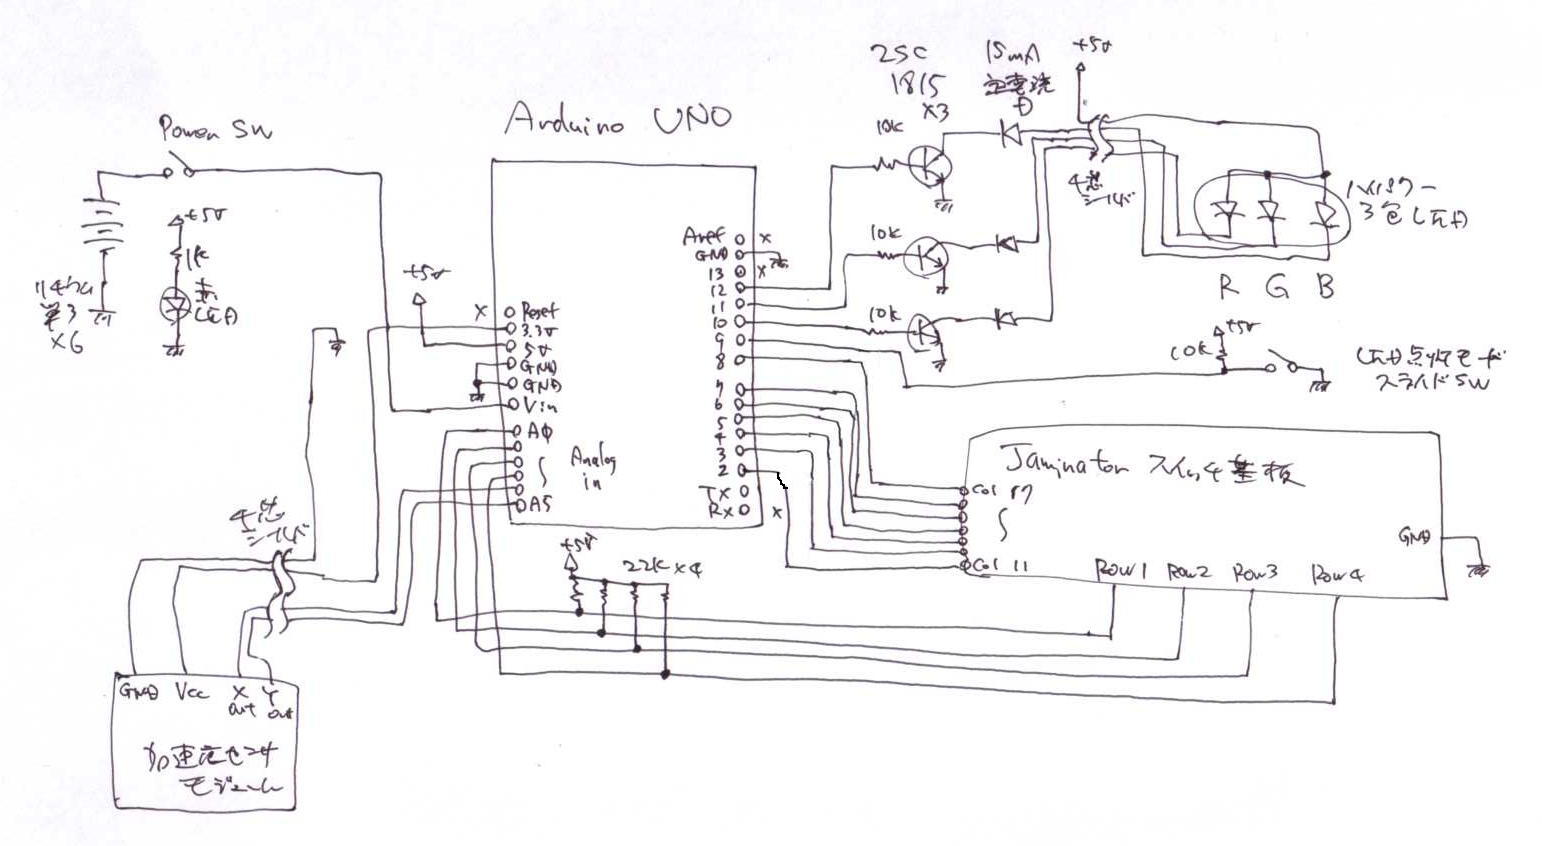 Power SW
+5v
1k
赤
LED
単3
x6
+5v
Arduino UNO
x
Reset
3.3v
5v
GND
GND
Vin
A0
A5
Analog
in
Aref x
GND
13 x
12
11
10
9
8
7
6
5
4
3
2
TX
RX x
2SC
1815
x3
15mA
定電流
D
+5v
10k
10k
10k
4芯
シールド
ハイパワー
3色LED
R G B
+5v
10k
LED点灯モード
スライドSW
Jaminator スイッチ基板
Col 17
Col 11
GND
Row1 Row2 Row3 Row4
4芯
シールド
+5v
22k x4
GND Vcc X out Y out
加速度センサ
モジュール